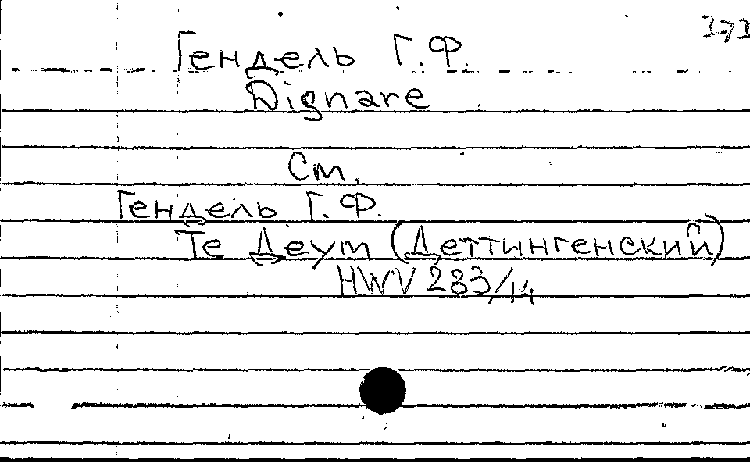 Гендель Г.Ф.
Dignare
См.
Гендель Г.Ф.
Те Деум (Деттингенский)
HWV 283/14